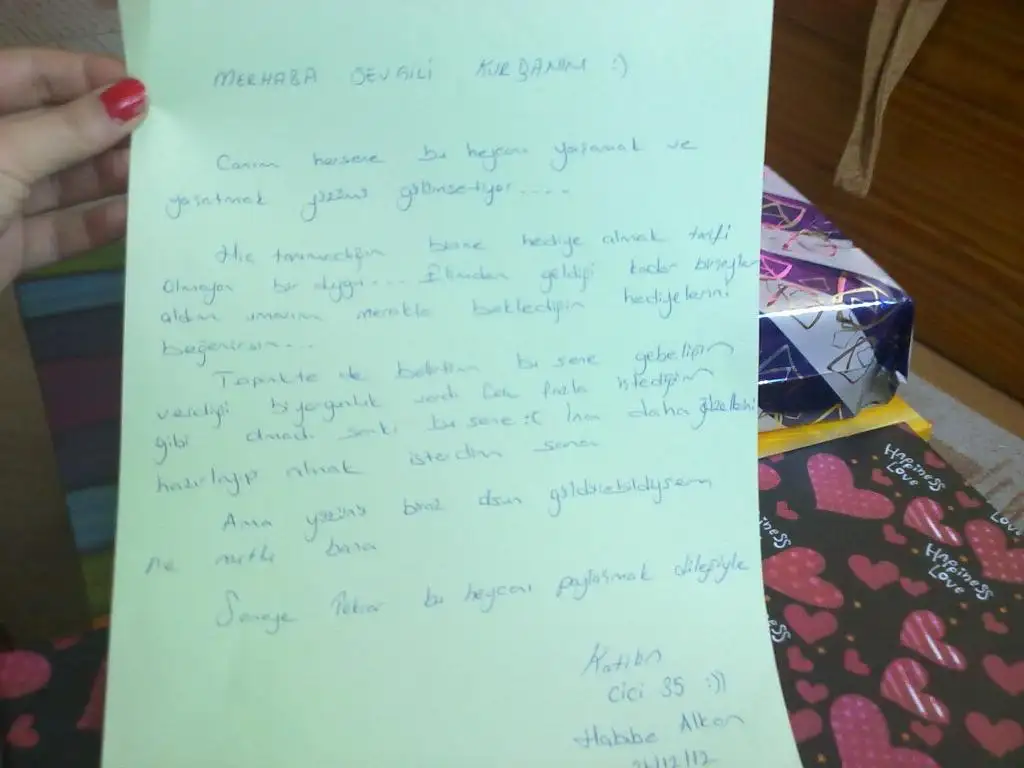 MERHABA SEVGİLİ KURBANIM :)
Canım hersene bu heycanı yaşamak ve
yaşatmak yüzümü gülümsetiyor....
Hiç tanımadığın birine hediye almak tarifi
olmayan bir duygu... Elimden geldiği kadar birşeyler
aldım umarım merakla beklediğin hediyelerini
beğenirsin...
Topikte de belirttim bu sene gebeliğin
verdiği bi yorgunluk vardı çok fazla istediğim
gibi olmadı sanki bu sene :( daha güzellerini
hazırlayıp almak isterdim sana
Ama yüzünü biraz olsun güldürebildiysem
ne mutlu bana
Seneye tekrar bu heycanı paylaşmak dileğiyle
Katilin
cici 35 :))
Habibe Alkan
/12/12
HAPPINESS LOVE
HAPPINESS LOVE
LOVE